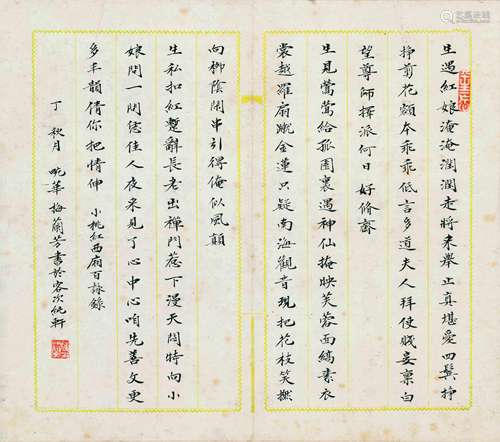 生遇紅娘淹淹潤潤走將來舉止真堪愛四鬢掙
掙剪花額本乖乖低言多道夫人拜使賤妾稟白
望尊師揮派何日好脩齋
生見鶯鶯給孤園裏遇神仙掩映芙蓉面縞素衣
裳越羅扇蹴金蓮只疑南海觀音現把花枝笑撚
向柳陰閑串引得俺似風顛
生私扣紅蹔辭長老出禪門惹下漫天悶特向小
娘問一問恁佳人夜來見了心中心咱先善文更
多丰韻倩你把情伸 小桃紅西廂百詠錄
丁秋月 畹華梅蘭芳書於客次軒